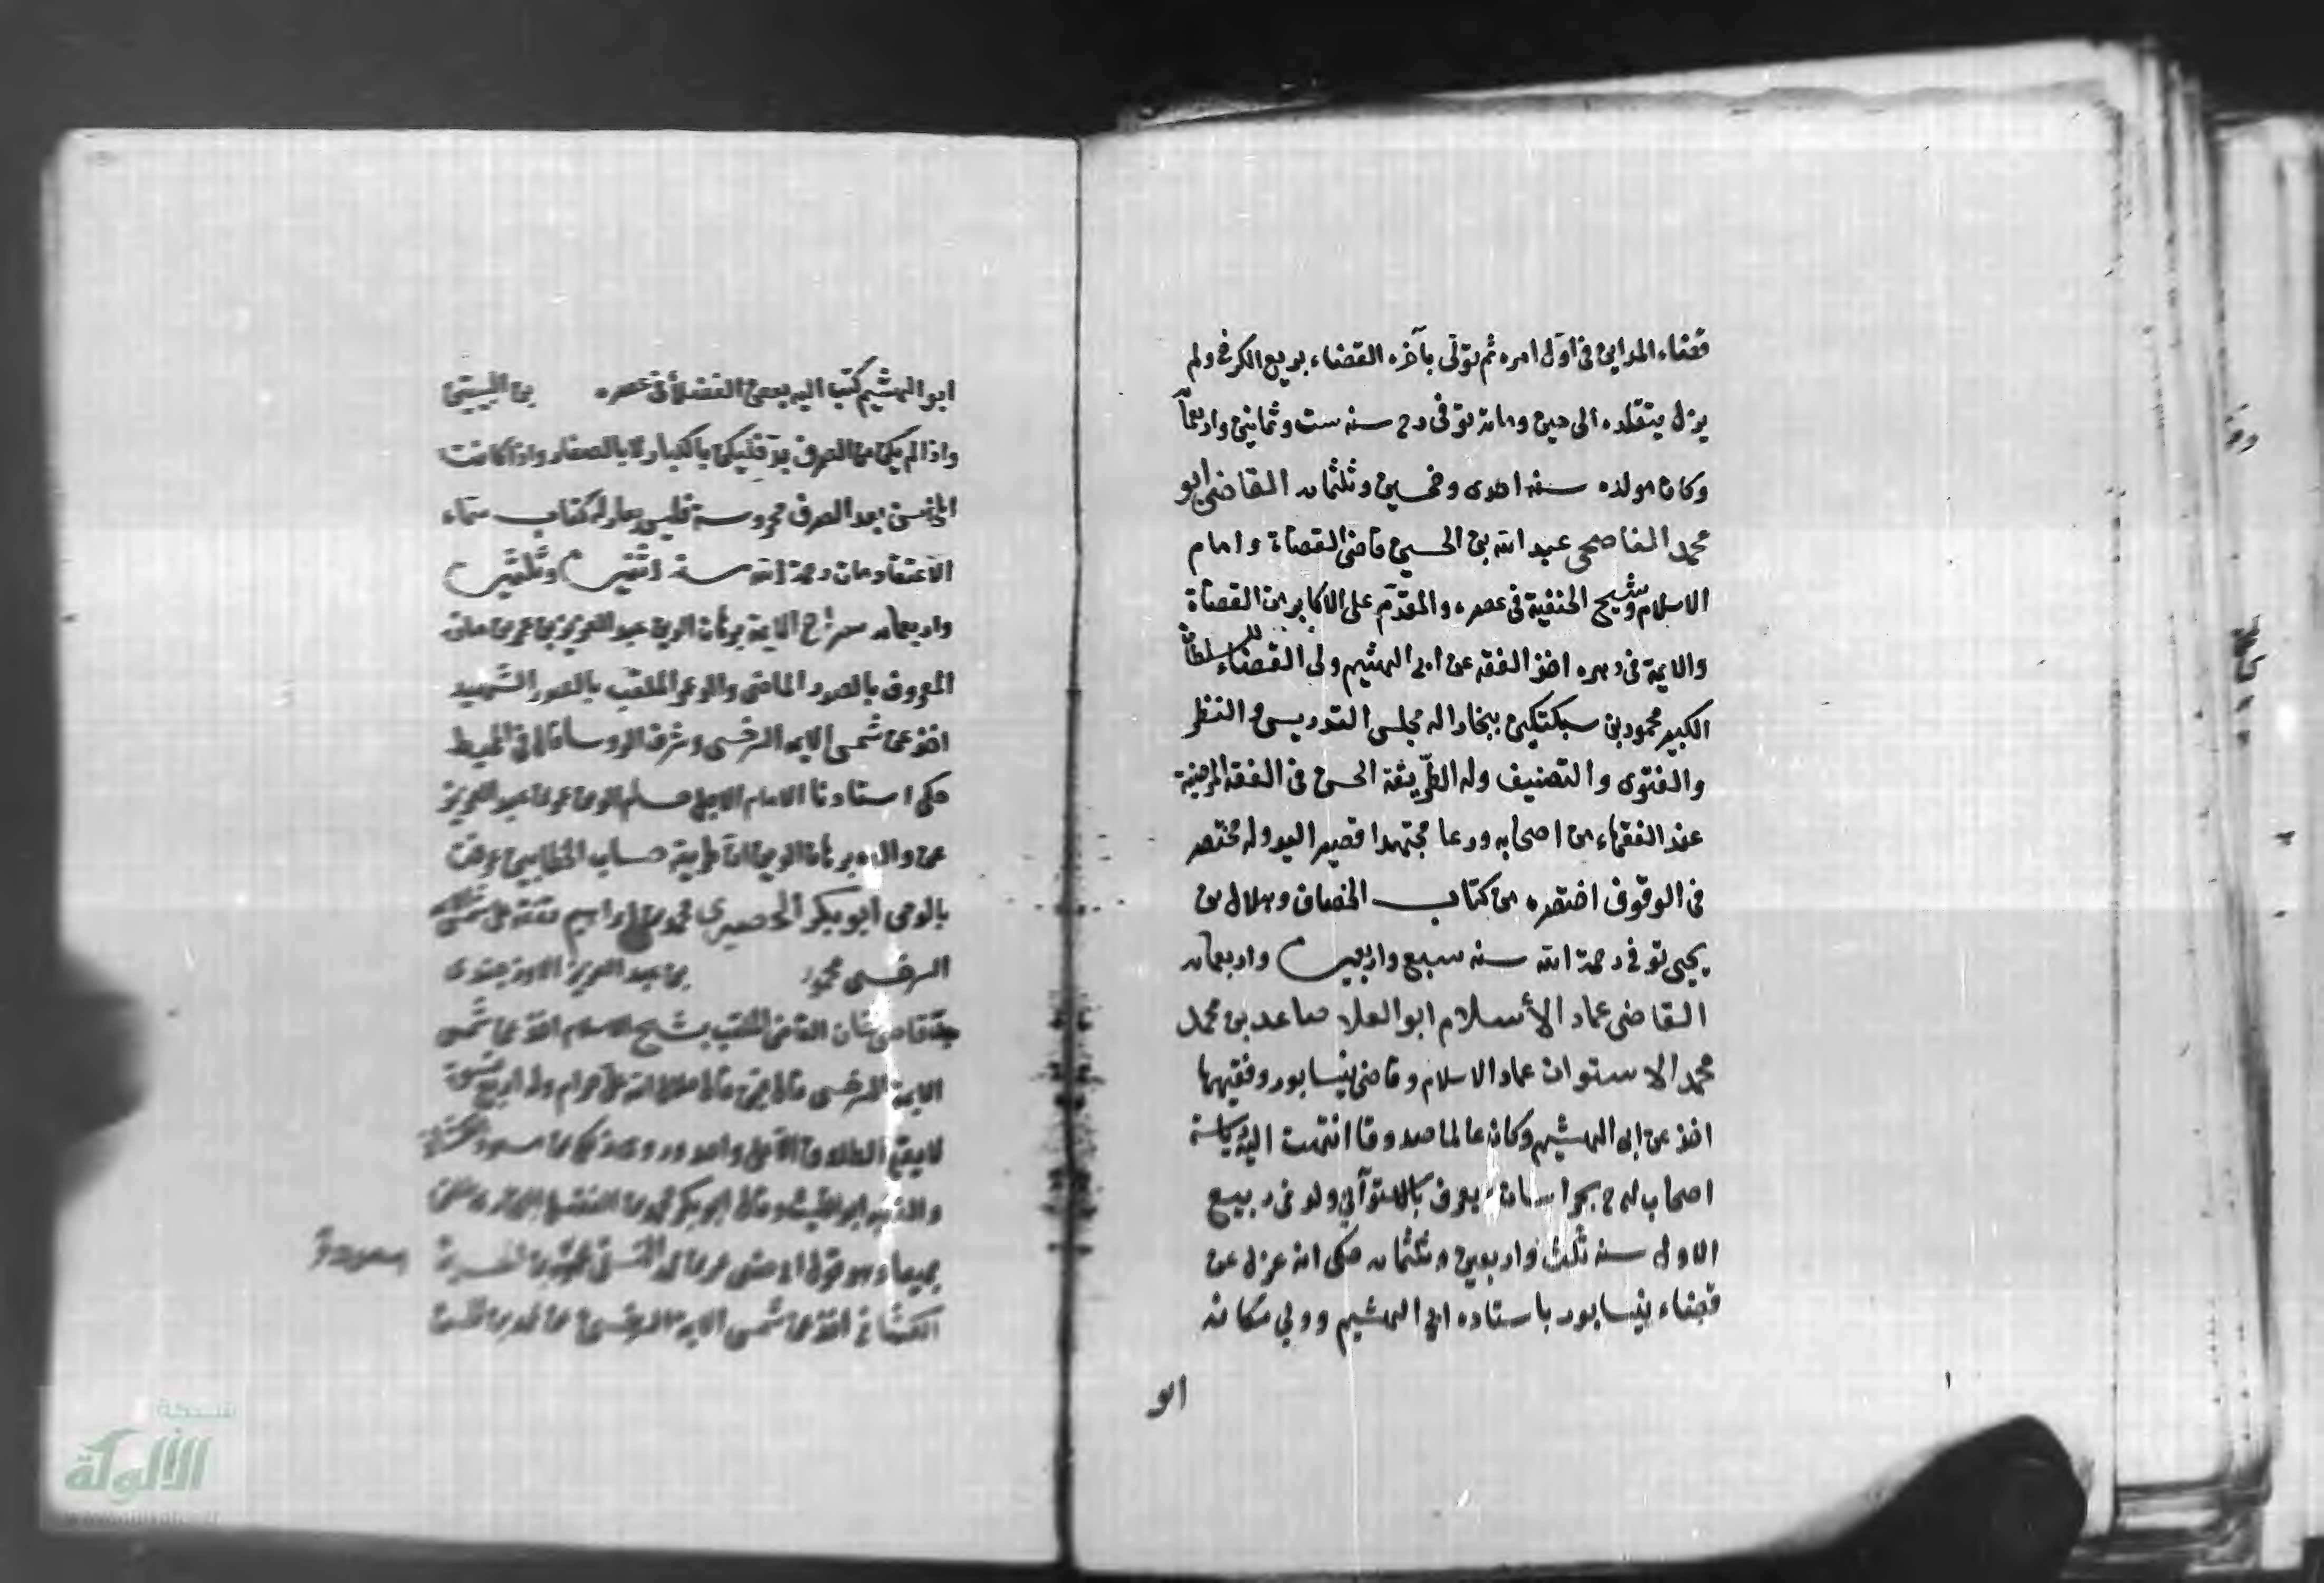 قضاء المداين فى اول امره ثم تولى بآخره القضاء بربع الكرخ ولم
يزل يتقلده الى حين وفاته توفى رح سنه ست وثمانين واربعمأ
وكان مولده سنه احدى وخمسين وثلثمائه القاضى ابو
محمد الناصحى عبد الله بن الحسين قاضى القضاة وامام
الاسلام وشيخ الحنفية فى عصره والمقدم على الاكابر من القضاة
والايمة فى دهره اخذ الفقه عن ابى الهثيم ولى القضاء للسلطان
الكبير محمود بن سبكتكين ببخارا له مجلس التدريس والنظر
والفتوى والتصنيف وله الطريقة الحسن فى الفقه المرضية
عند الفقهاء من اصحابه ورعا مجتهدا قصير اليد وله مختصر
فى الوقوف اختصره من كتاب الخصاف وهلال بن
يحيى توفى رحمة الله سنه سبع واربعين واربعمائه
القاضى عماد الأسلام ابو العلا صاعد بن محمد
محمد الاستوان عماد الاسلام وقاضى نيسابور وفقيهها
اخذ عن ابى الهشيم وكان عالما صدوقا انتهت اليه رياسة
اصحاب له ح بخراسان يعرف بالاستوآئى ولد فى ربيع
الاول سنه ثلث واربعين وثلثمائه حكى انه عزل عن
قضاء نيسابور باستاده ابى الهشيم وولى مكانه
ابو
ابو الهشيم كتب اليه بعض الفضلأ فى عصره
واذا لم يكن من الصرف بد فليكن بالكبار لا بالصغار واذا كانت
المحاسن بعد الصرف محروسة فليس بعار له كتاب سماه
الاعتقاد مات رحمة الله سنة اثنتين وثلثين
واربعمائه سراج الايمة برهان الدين عبد العزيز بن عمر بن مازه
المعروف بالصدر الماضى والد عمر الملقب بالصدر الشهيد
اخذ عن شمس الايمه السرخسى وشرف الروسا قال فى المحيط
حكى استادنا الامام الاجل حسام الدين عمر بن عبد العزيز
عن والده برهان الدين ان طريقة حساب الخطايين عرفت
بالوحى ابو بكر الحصيرى محمد بن ابراهيم تفقه على شمس
السرخسى محمود بن عبد العزيز الاوزجندى
جد قاضى خان القاضى الملقب بشيخ الاسلام اخذ عن شمس
الايمة السرخسى
لا يقع الطلاق الا على واحد
والفقيه ابو الليث وقال ابو بكر
جميعا وهو قول
الكشانى اخذ عن شمس الايمة السرخسى عن محمد بن